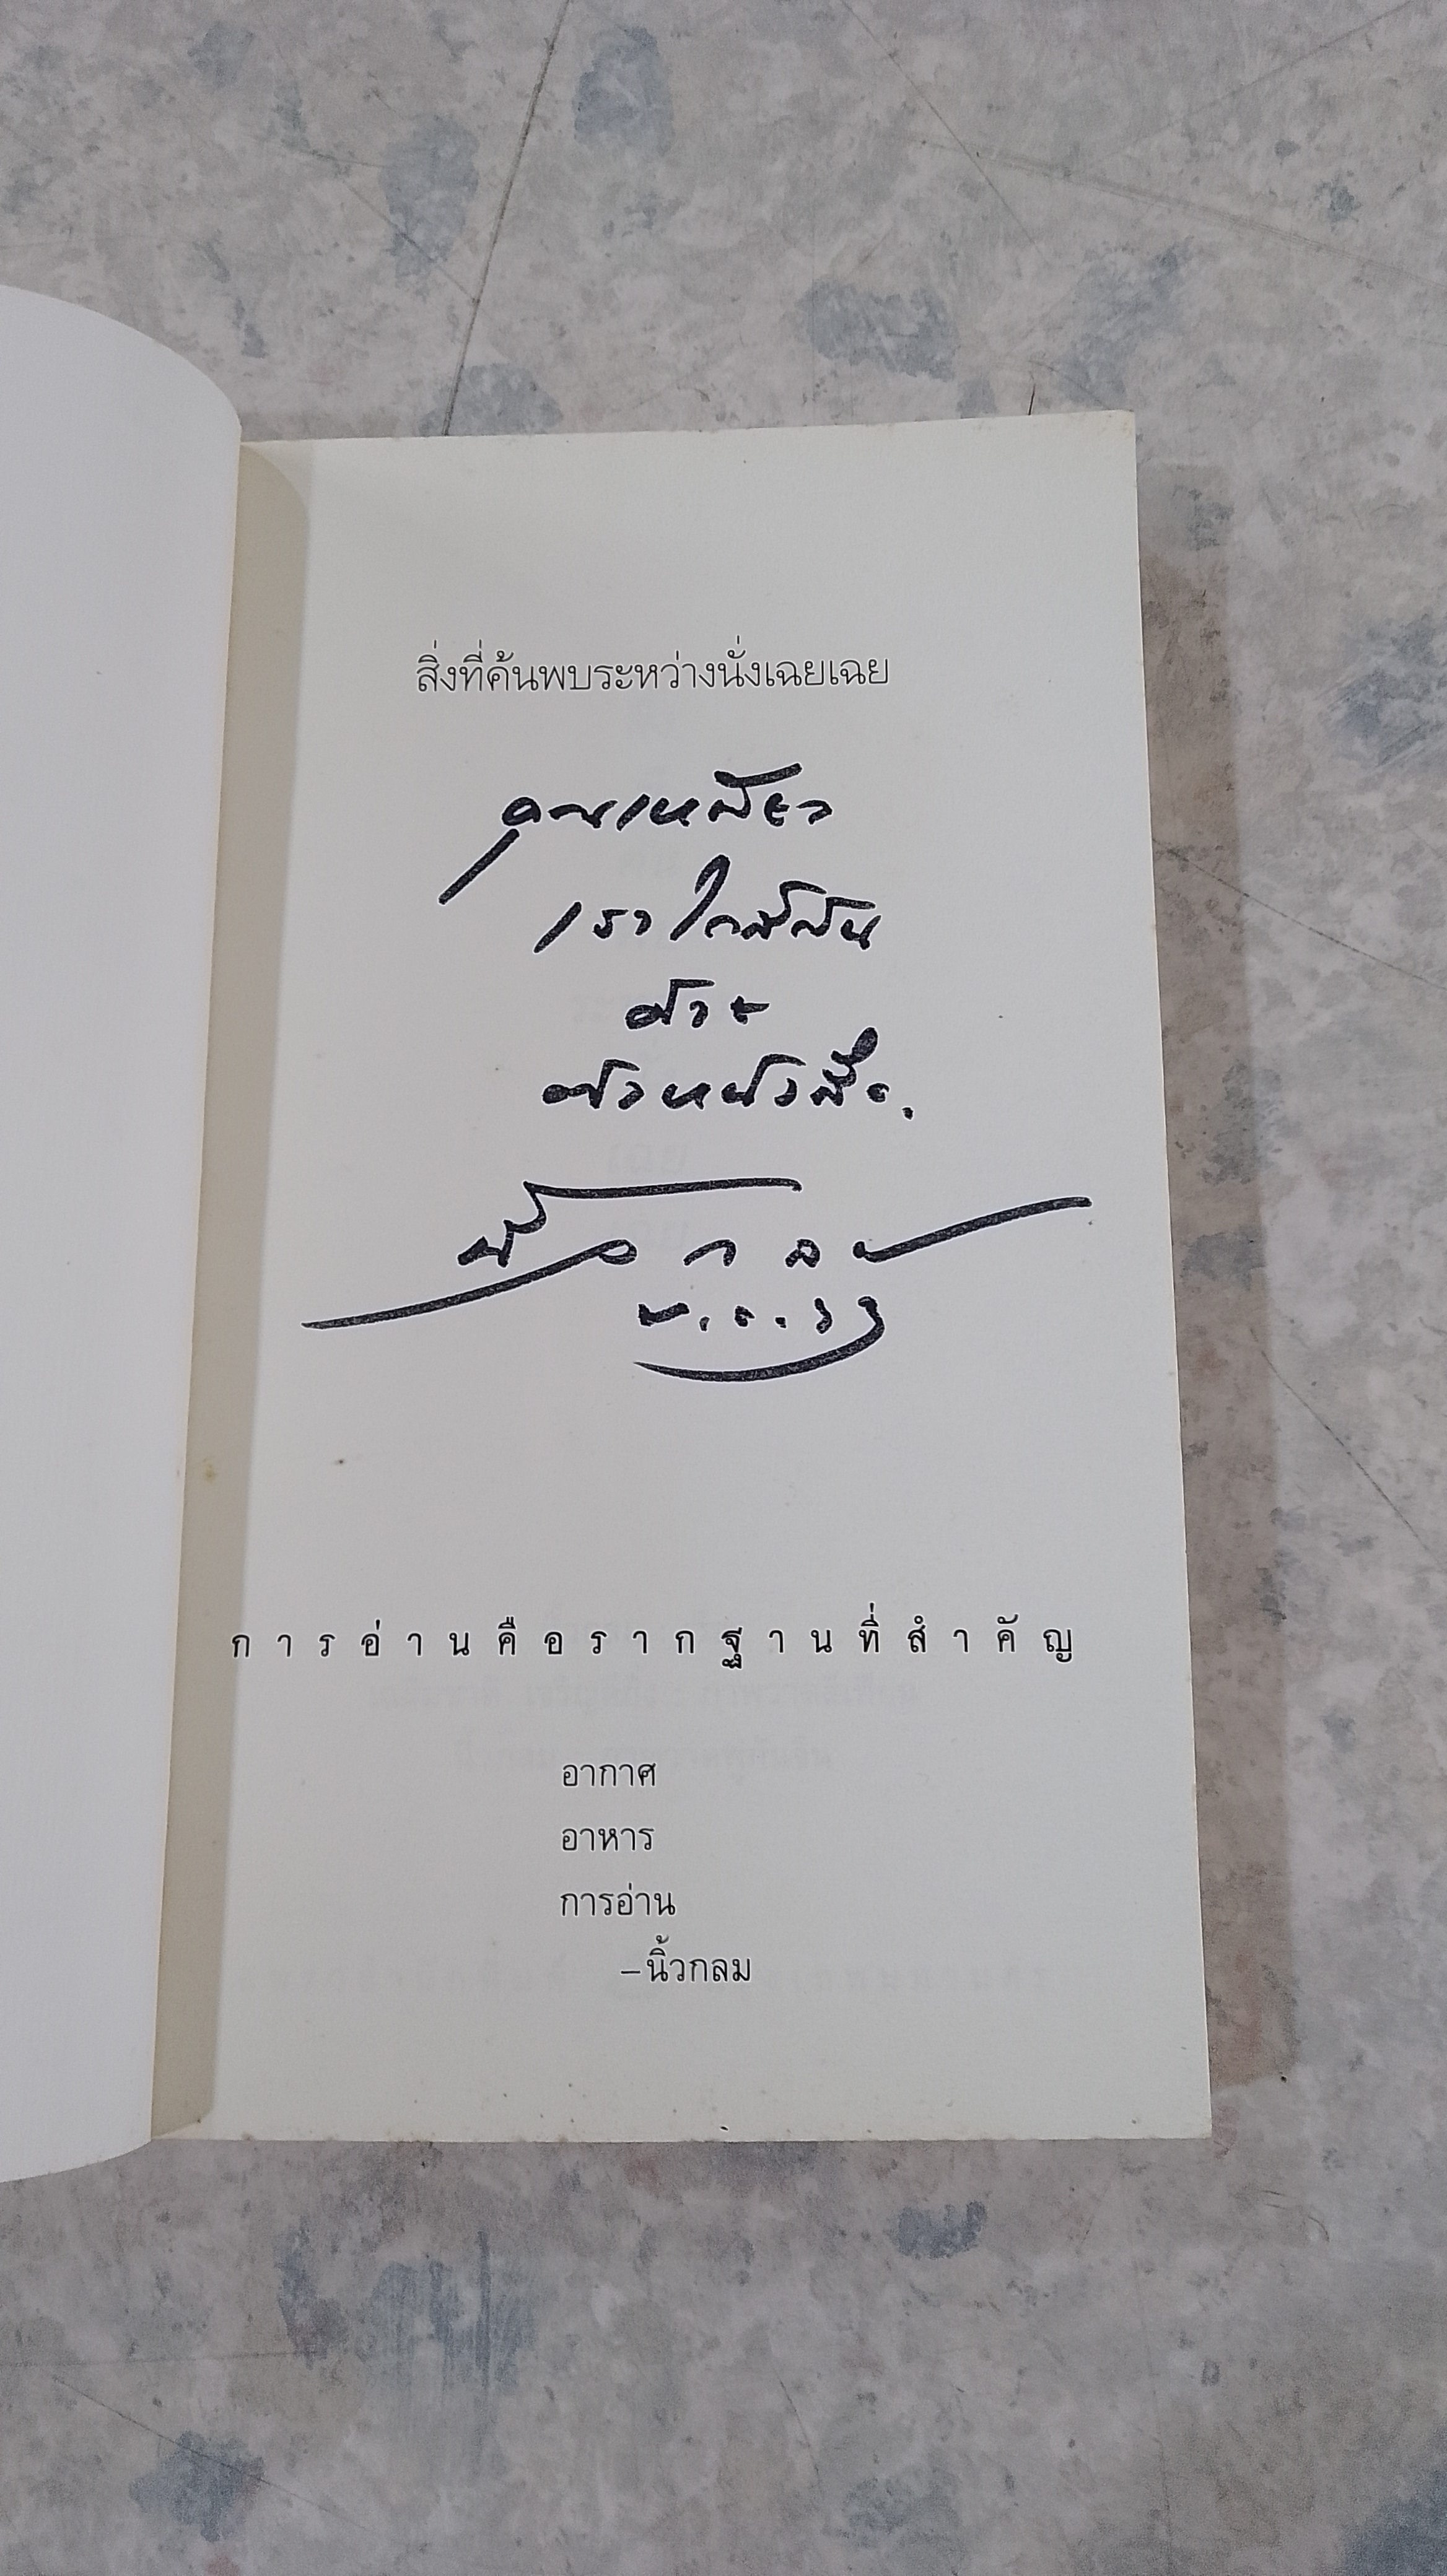 สิ่งที่ค้นพบระหว่างนั่งเฉยเฉย
คุณเหมียว
เราใกล้กัน
ด้วย
ตัวหนังสือ.
นิ้วกลม
การอ่านคือรากฐานที่สำคัญ
อากาศ
อาหาร
การอ่าน
–นิ้วกลม